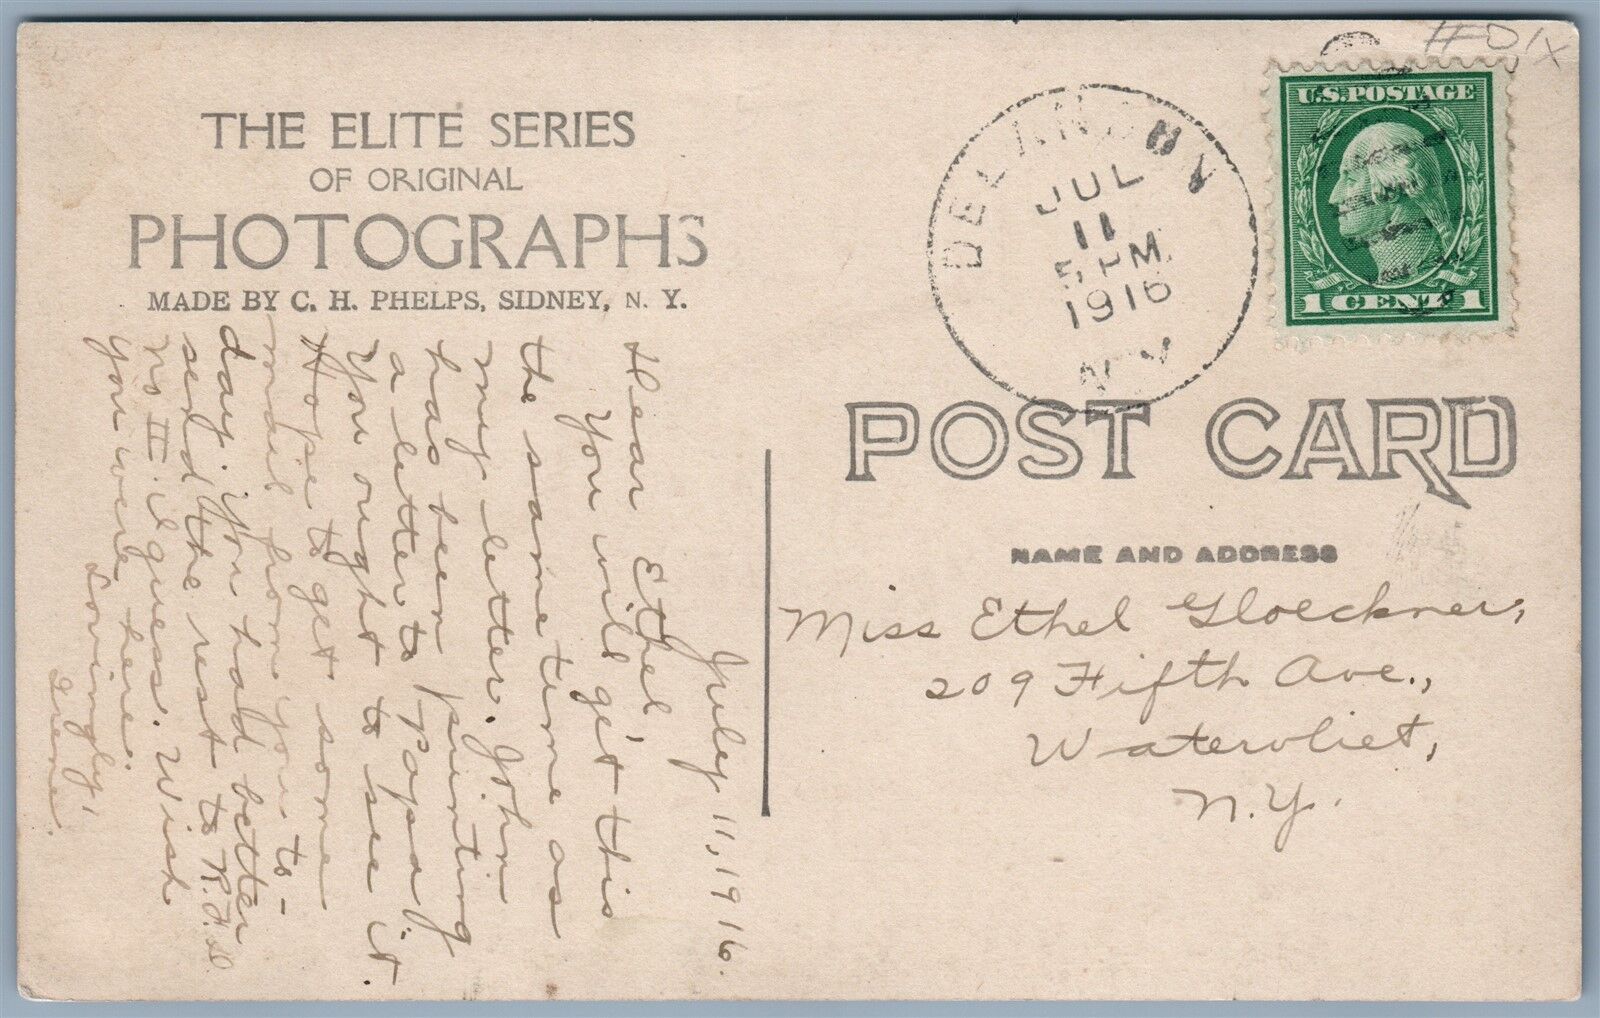 THE ELITE SERIES
OF ORIGINAL
PHOTOGRAPHS
MADE BY C. H. PHELPS, SIDNEY, N. Y.
July 11, 1916.
Dear Ethel,
You will get this
the same time as
my letter. John
has been printing
a letter to papa.
You ought to see it.
Hope to get some
mail from you to-
day. You had better
send the rest to R.F.D.
no II I guess. Wish
you were here.
Lovingly,
Irene.
DELANCEY
JUL
11
5 PM
1916
N.Y.
U.S. POSTAGE
1 CENT 1
POST CARD
NAME AND ADDRESS
Miss Ethel Gloeckner,
209 Fifth Ave.,
Watervliet,
N.Y.